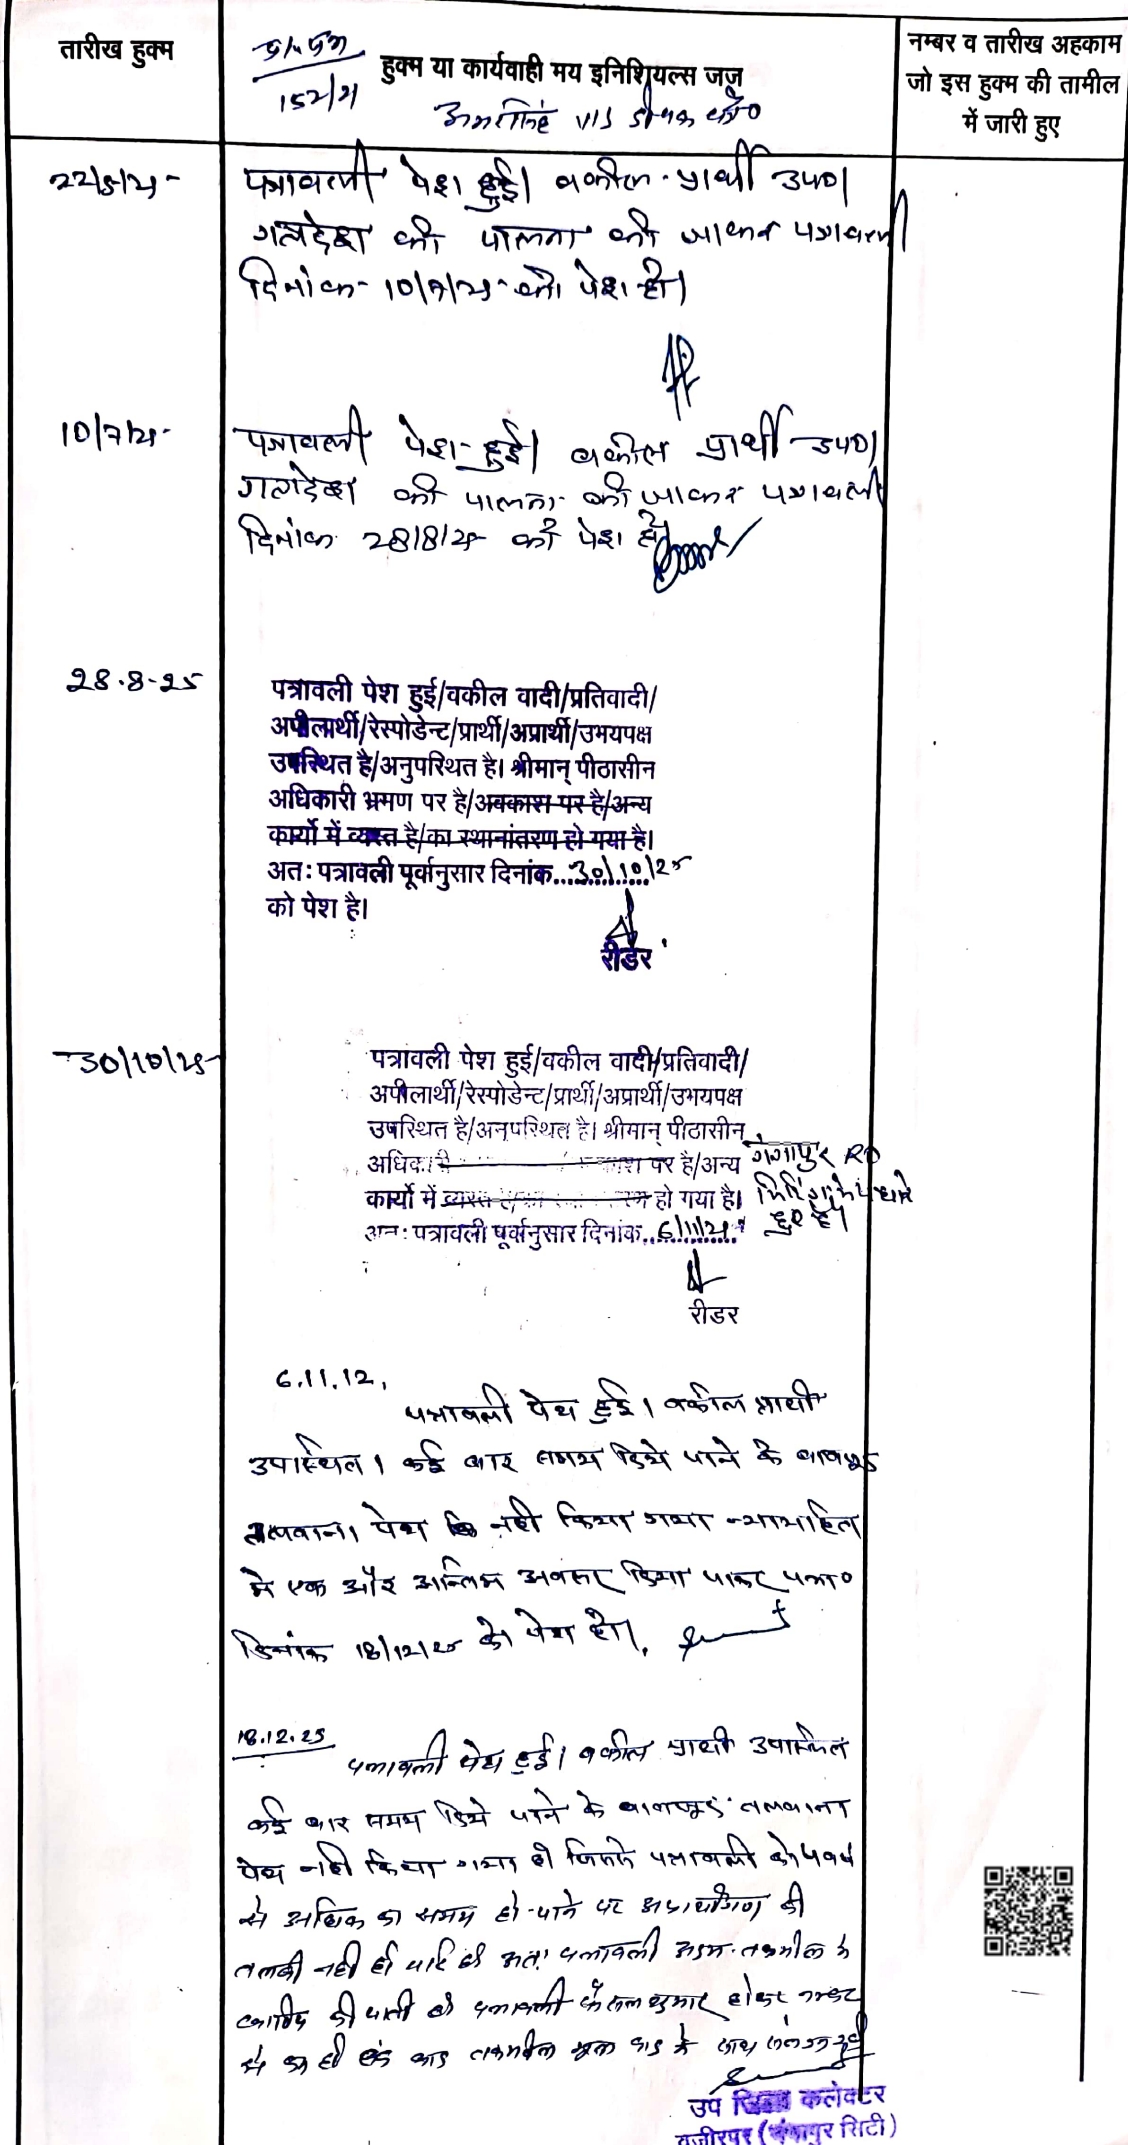 तारीख हुक्म
152/21
हुक्म या कार्यवाही मय इनिशियल्स जज
अमरसिंह V/S दीपक
नम्बर व तारीख अहकाम
जो इस हुक्म की तामील
में जारी हुए
22/5/25
पत्रावली पेश हुई। वकील प्रार्थी उप0।
गतादेश की पालना की जाकर पत्रावली
दिनांक 10/7/25 को पेश हो।
10/7/25
पत्रावली पेश हुई। वकील प्रार्थी उप0।
गतादेश की पालना की जाकर पत्रावली
दिनांक 28/8/25 को पेश हो
28.8.25
पत्रावली पेश हुई/वकील वादी/प्रतिवादी/
अपीलार्थी/रेस्पोडेन्ट/प्रार्थी/अप्रार्थी/उभयपक्ष
उपस्थित है/अनुपस्थित है। श्रीमान् पीठासीन
अधिकारी भ्रमण पर है/अवकाश पर है/अन्य
कार्यो में व्यस्त है/का स्थानांतरण हो गया है।
अतः पत्रावली पूर्वानुसार दिनांक...30/10/25
को पेश है।
रीडर
30/10/25
पत्रावली पेश हुई/वकील वादी/प्रतिवादी/
अपीलार्थी/रेस्पोडेन्ट/प्रार्थी/अप्रार्थी/उभयपक्ष
उपस्थित है/अनुपस्थित है। श्रीमान् पीठासीन
पर है/अन्य गंगापुर
कार्यो में व्यस्त हो गया है।
हुए है
अतः पत्रावली पूर्वानुसार दिनांक..6/11/25
रीडर
6.11.12.
पत्रावली पेश हुई। वकील प्रार्थी
उपस्थित। कई बार समय दिये जाने के बावजूद
तलवाना पेश नही किया गया न्यायहित
मे एक और अन्तिम अवसर दिया जाकर पत्रा०
दिनांक 18/12/25 को पेश हो।
18.12.25
पत्रावली पेश हुई। वकील प्रार्थी उपस्थित
कई बार समय दिये जाने के बावजूद तलवाना
पेश नही किया गया है जिससे पत्रावली को 4 वर्ष
से अधिक का समय हो जाने पर अप्रार्थीगण की
तलबी नही हो पाई है अतः पत्रावली अदम तकमील मे
खारिज की जाती है पत्रावली फैसल शुमार होकर नम्बर
से कम हो बाद तकमील मूल वाद के साथ संलग्न हो
उप जिला कलेक्टर
वजीरपुर (गंगापुर सिटी)